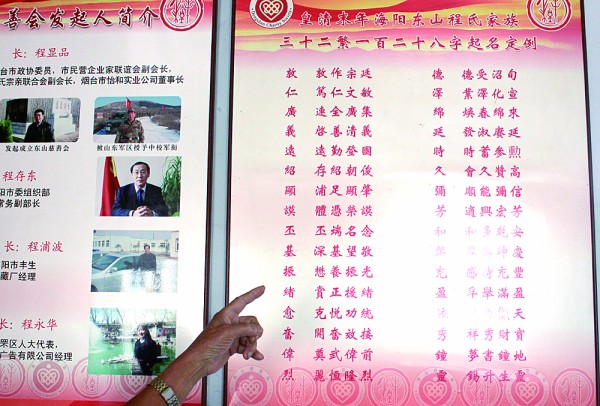 善会发起人简介
长：程显品
台市政协委员，市民营企业家联谊会副会长，
氏宗亲联合会副会长，烟台市怡和实业公司董事长
发起成立东山慈善会
被山东军区授予中校军衔
程存东
阳市委组织部
常务副部长
长：程浦波
阳市丰生
藏厂经理
长：程永华
罘区人大代表，
广告有限公司经理
皇清末年海阳东山程氏家族
三十二繁一百二十八字起名定例
敦 敦作宗廷 德 德受沼旬
仁 篤仁文敏 澤 業澤化宣
廣 遠全廣集 綿 煥春綿來
義 啓善清義 廷 發淑慶廷
遠 遠勤登國 時 時蓄參勲
紹 存紹朝俊 久 會久贊高
顯 浦足顯肇 彌 順能彌信
謨 體憑榮謨 芳 道興宏芳
丕 丕端名念 和 和 安
基 深基望敬 慶
振 懋善振光 充 充豐
緒 賞正援緒 盈 孚舉滿盈
愈 克悦功統 天
奮 開奮效接 秀 秀財寶
偉 奠武偉前 鐘 夢書鐘地
烈 麗恒隆烈 靈 錫升生靈